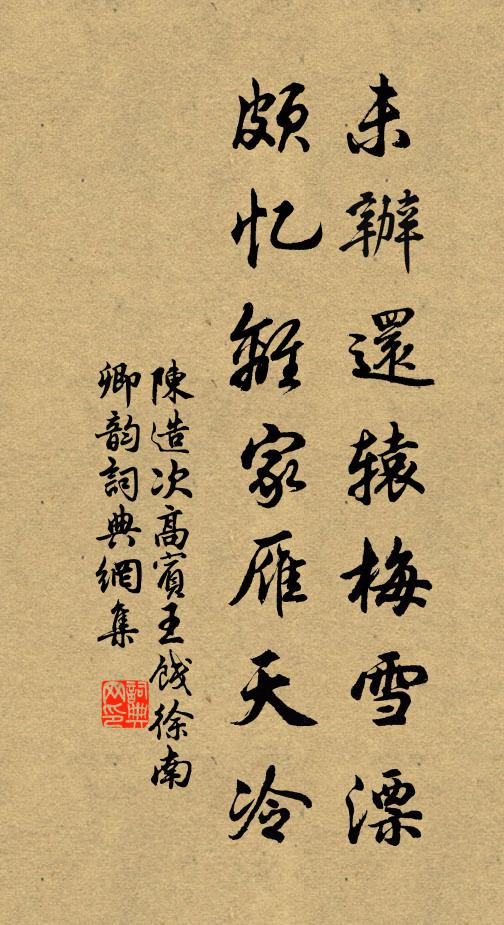 未辦還辕梅雪漂
頗忆離家雁天冷
陳造次高賓王餞徐南
卿韵詞典網集
詞典
网印